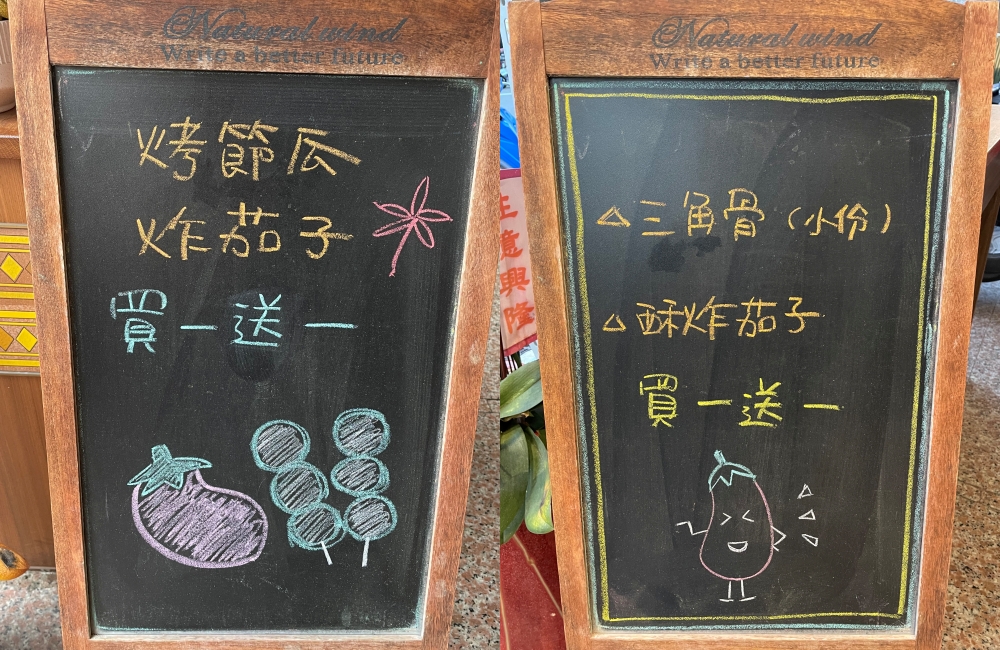 Natural wind
Write a better future
烤節瓜
炸茄子
買一送一
Natural wind
Write a better future
△三角骨（小份）
△酥炸茄子
買一送一
生意興隆